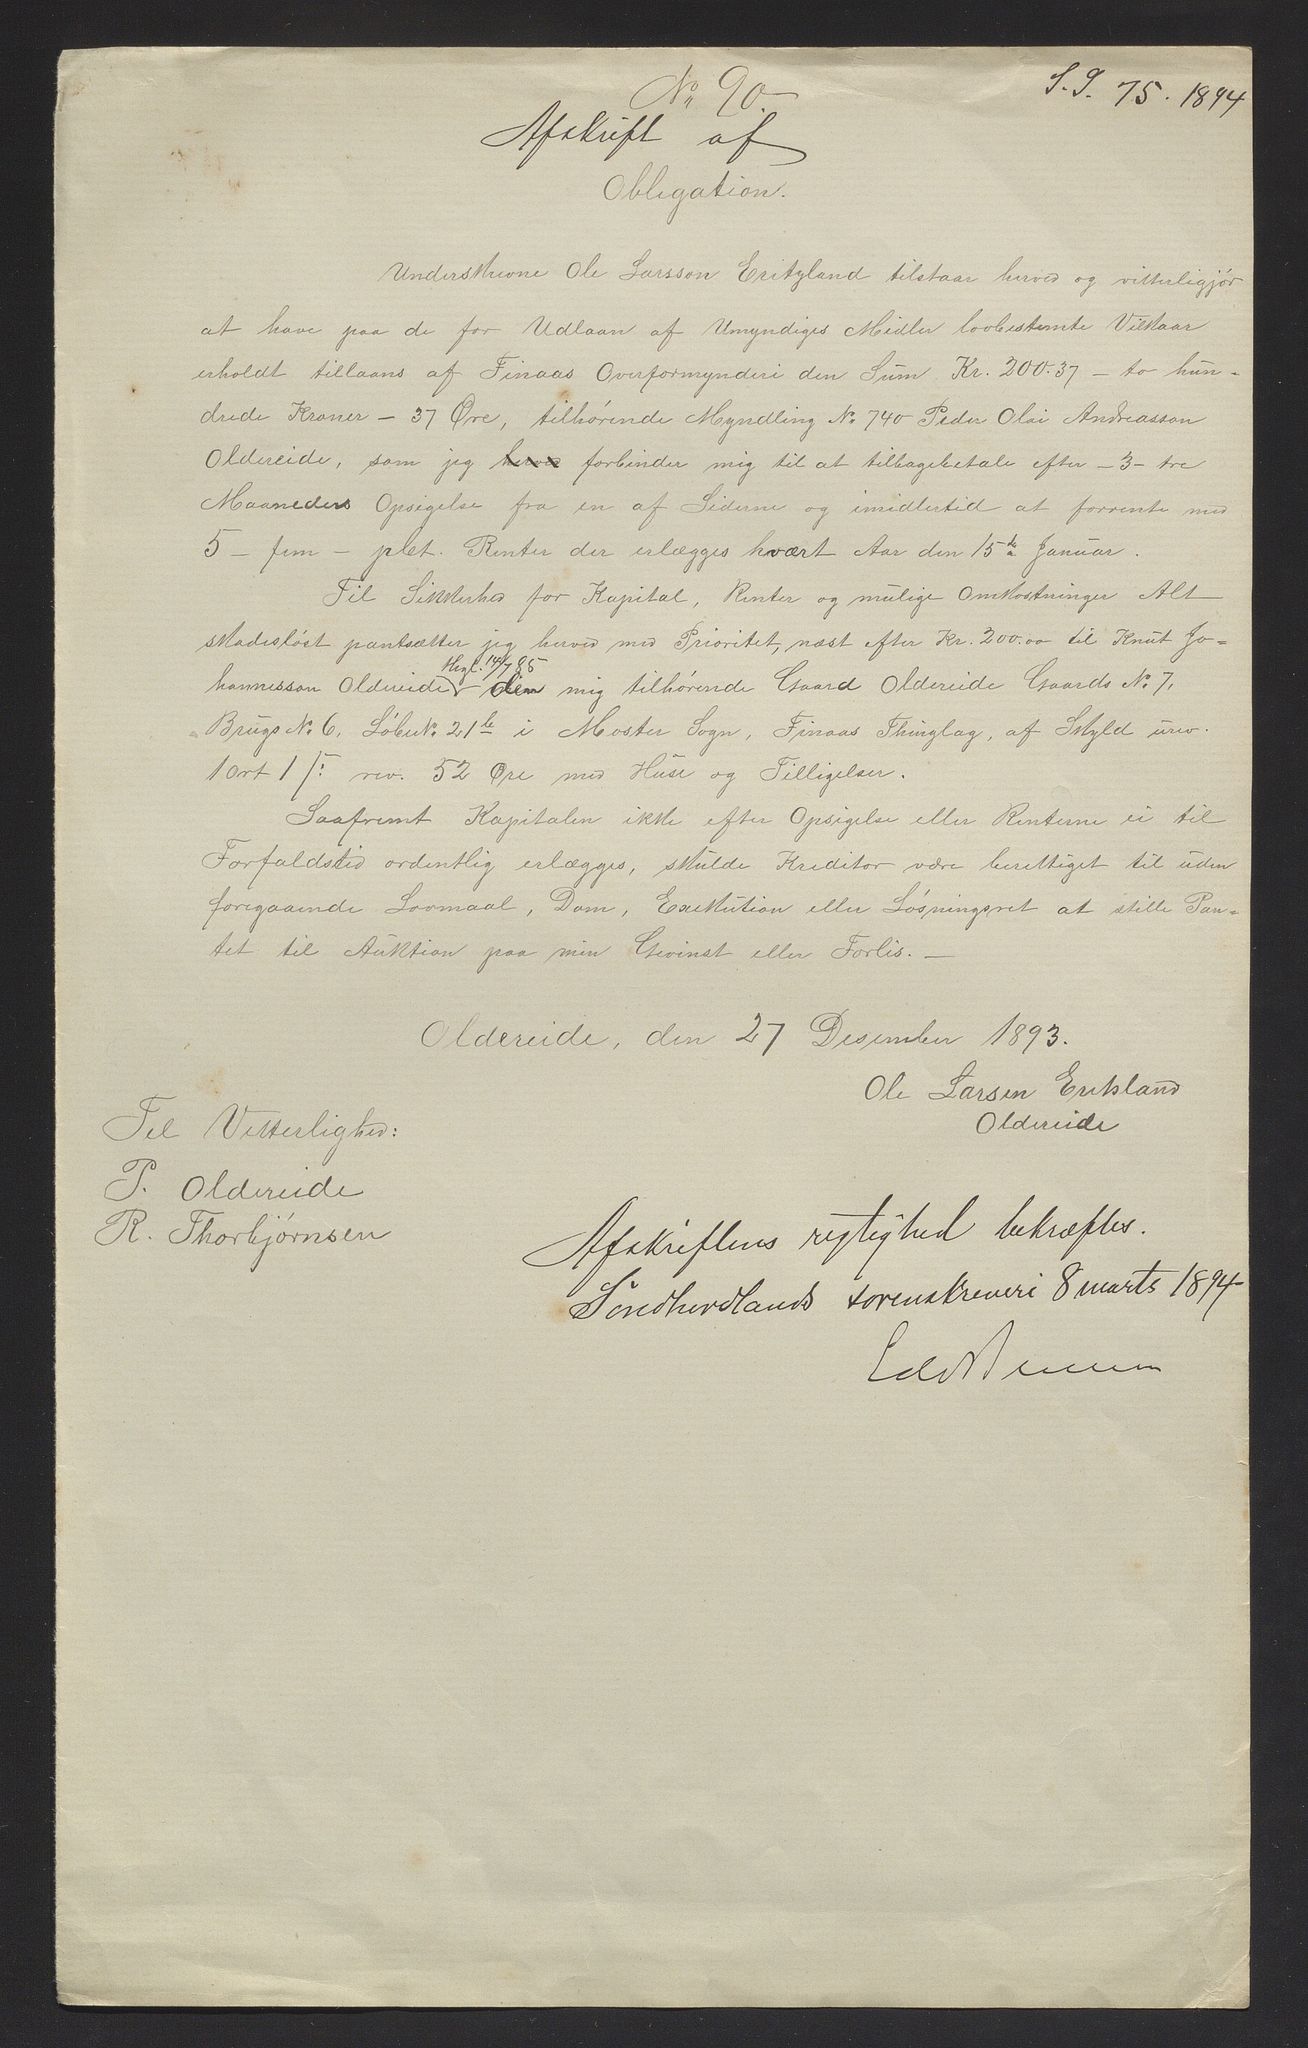 No 90.
S.J. 75. 1894
Afskrift af
Obligation.
Underskrevne Ole Larsson Eritzland tilstaar herved og vitterligjør
at have paa de for Udlaan af Umyndiges Midler lovbestemte Vilkaar
erholdt tillaans af Finaas Overformynderi den Sum Kr. 200.37 – to hun-
drede Kroner – 37 Øre, tilhørende Myndling No 740 Peder Olai Andreasson
Oldereide, som jeg herved forbinder mig til at tilbagebetale efter – 3 – tre
Maaneders Opsigelse fra en af Siderne og imidlertid at forrente med
5 – fem – pCt. Renter der erlægges hvært Aar den 15de Januar.
Til Sikkerhed for Kapital, Renter og mulige Omkostninger Alt
skadesløst pantsætter jeg herved med Prioritet, næst efter Kr. 200.00 til Knut Jo-
hannesson Oldereide thgl. 14/7 85 den mig tilhørende Gaard Oldereide Gaards No 7,
Brugs No 6, Løbe No 21b i Moster Sogn, Finaas Thinglag, af Skyld urev.
1 Ort 1 ß: rev. 52 Øre med Huse og Tilligelser.
Saafremt Kapitalen ikke efter Opsigelse eller Renterne ei til
Forfaldstid ordentlig erlægges, skulde Kreditor være berettiget til uden
foregaaende Lovmaal, Dom, Exekution eller Løsningsret at stille Pan-
tet til Auktion paa min Gevinst eller Forlis. –
Oldereide, den 27 Desember 1893.
Ole Larsen Eriksland
Oldereide
Til Vitterlighed:
P. Oldereide
R. Thorbjørnsen
Afskriftens rigtighed bekræftes.
Søndhordlands sorenskriveri 8 marts 1894